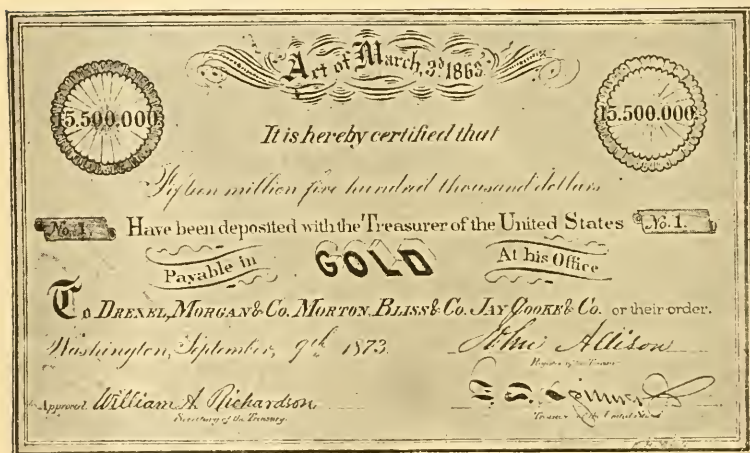 Act of March, 3d. 1863.
15.500.000. 15.500.000.
It is hereby certified that
Fifteen million five hundred thousand dollars
No. 1. Have been deposited with the Treasurer of the United States No. 1.
Payable in GOLD At his Office
To DREXEL, MORGAN & CO. MORTON, BLISS & CO. JAY COOKE & CO. or their order.
Washington, September, 9th 1873. John Allison
Register of the Treasury
Approved. William A Richardson
Secretary of the Treasury. Treasurer of the United States